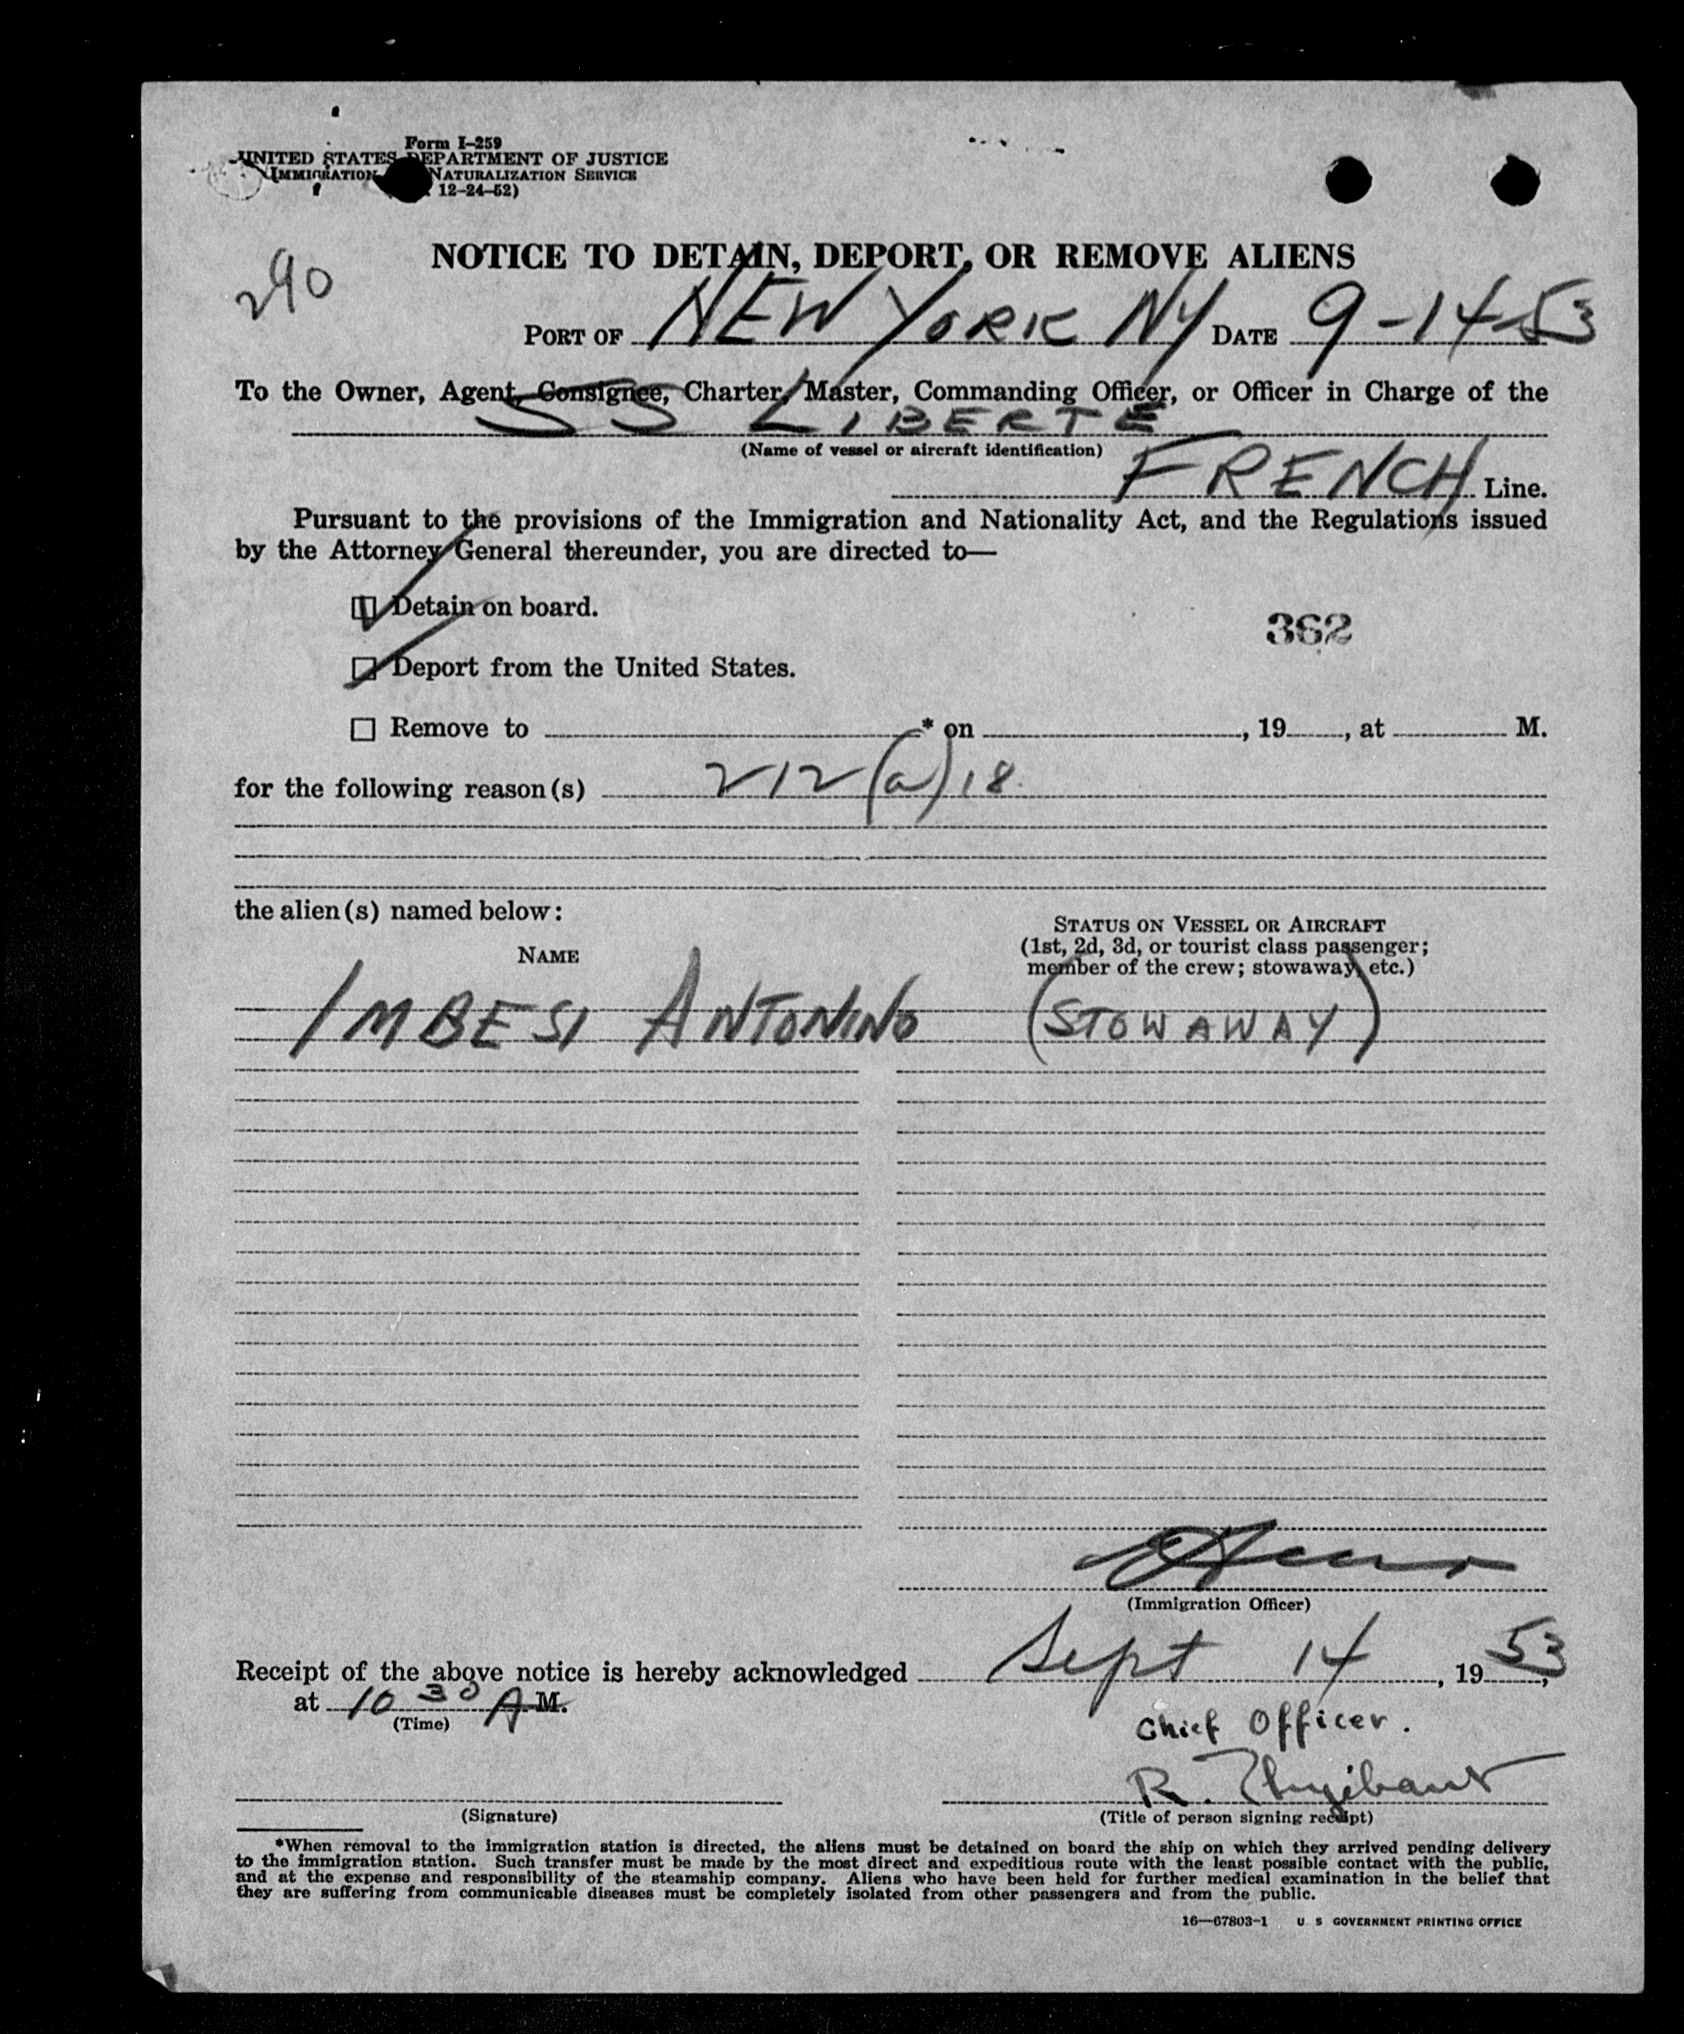 Form I-259
UNITED STATES DEPARTMENT OF JUSTICE
IMMIGRATION NATURALIZATION SERVICE
12-24-52)
NOTICE TO DETAIN, DEPORT, OR REMOVE ALIENS
290
PORT OF NEW YORK NY DATE 9-14-53
To the Owner, Agent, Consignee, Charter, Master, Commanding Officer, or Officer in Charge of the
SS LIBERTE
(Name of vessel or aircraft identification)
FRENCH Line.
Pursuant to the provisions of the Immigration and Nationality Act, and the Regulations issued
by the Attorney General thereunder, you are directed to—
Detain on board.
362
Deport from the United States.
Remove to * on , 19 , at M.
for the following reason(s) 212(a)18
the alien(s) named below:
NAME
STATUS ON VESSEL OR AIRCRAFT
(1st, 2d, 3d, or tourist class passenger;
member of the crew; stowaway, etc.)
IMBESI ANTONINO (STOWAWAY)
(Immigration Officer)
Receipt of the above notice is hereby acknowledged Sept 14, 1953,
at 10 30 A M.
(Time)
Chief Officer.
R.
(Signature)
(Title of person signing receipt)
*When removal to the immigration station is directed, the aliens must be detained on board the ship on which they arrived pending delivery
to the immigration station. Such transfer must be made by the most direct and expeditious route with the least possible contact with the public,
and at the expense and responsibility of the steamship company. Aliens who have been held for further medical examination in the belief that
they are suffering from communicable diseases must be completely isolated from other passengers and from the public.
16—67803-1 U S GOVERNMENT PRINTING OFFICE